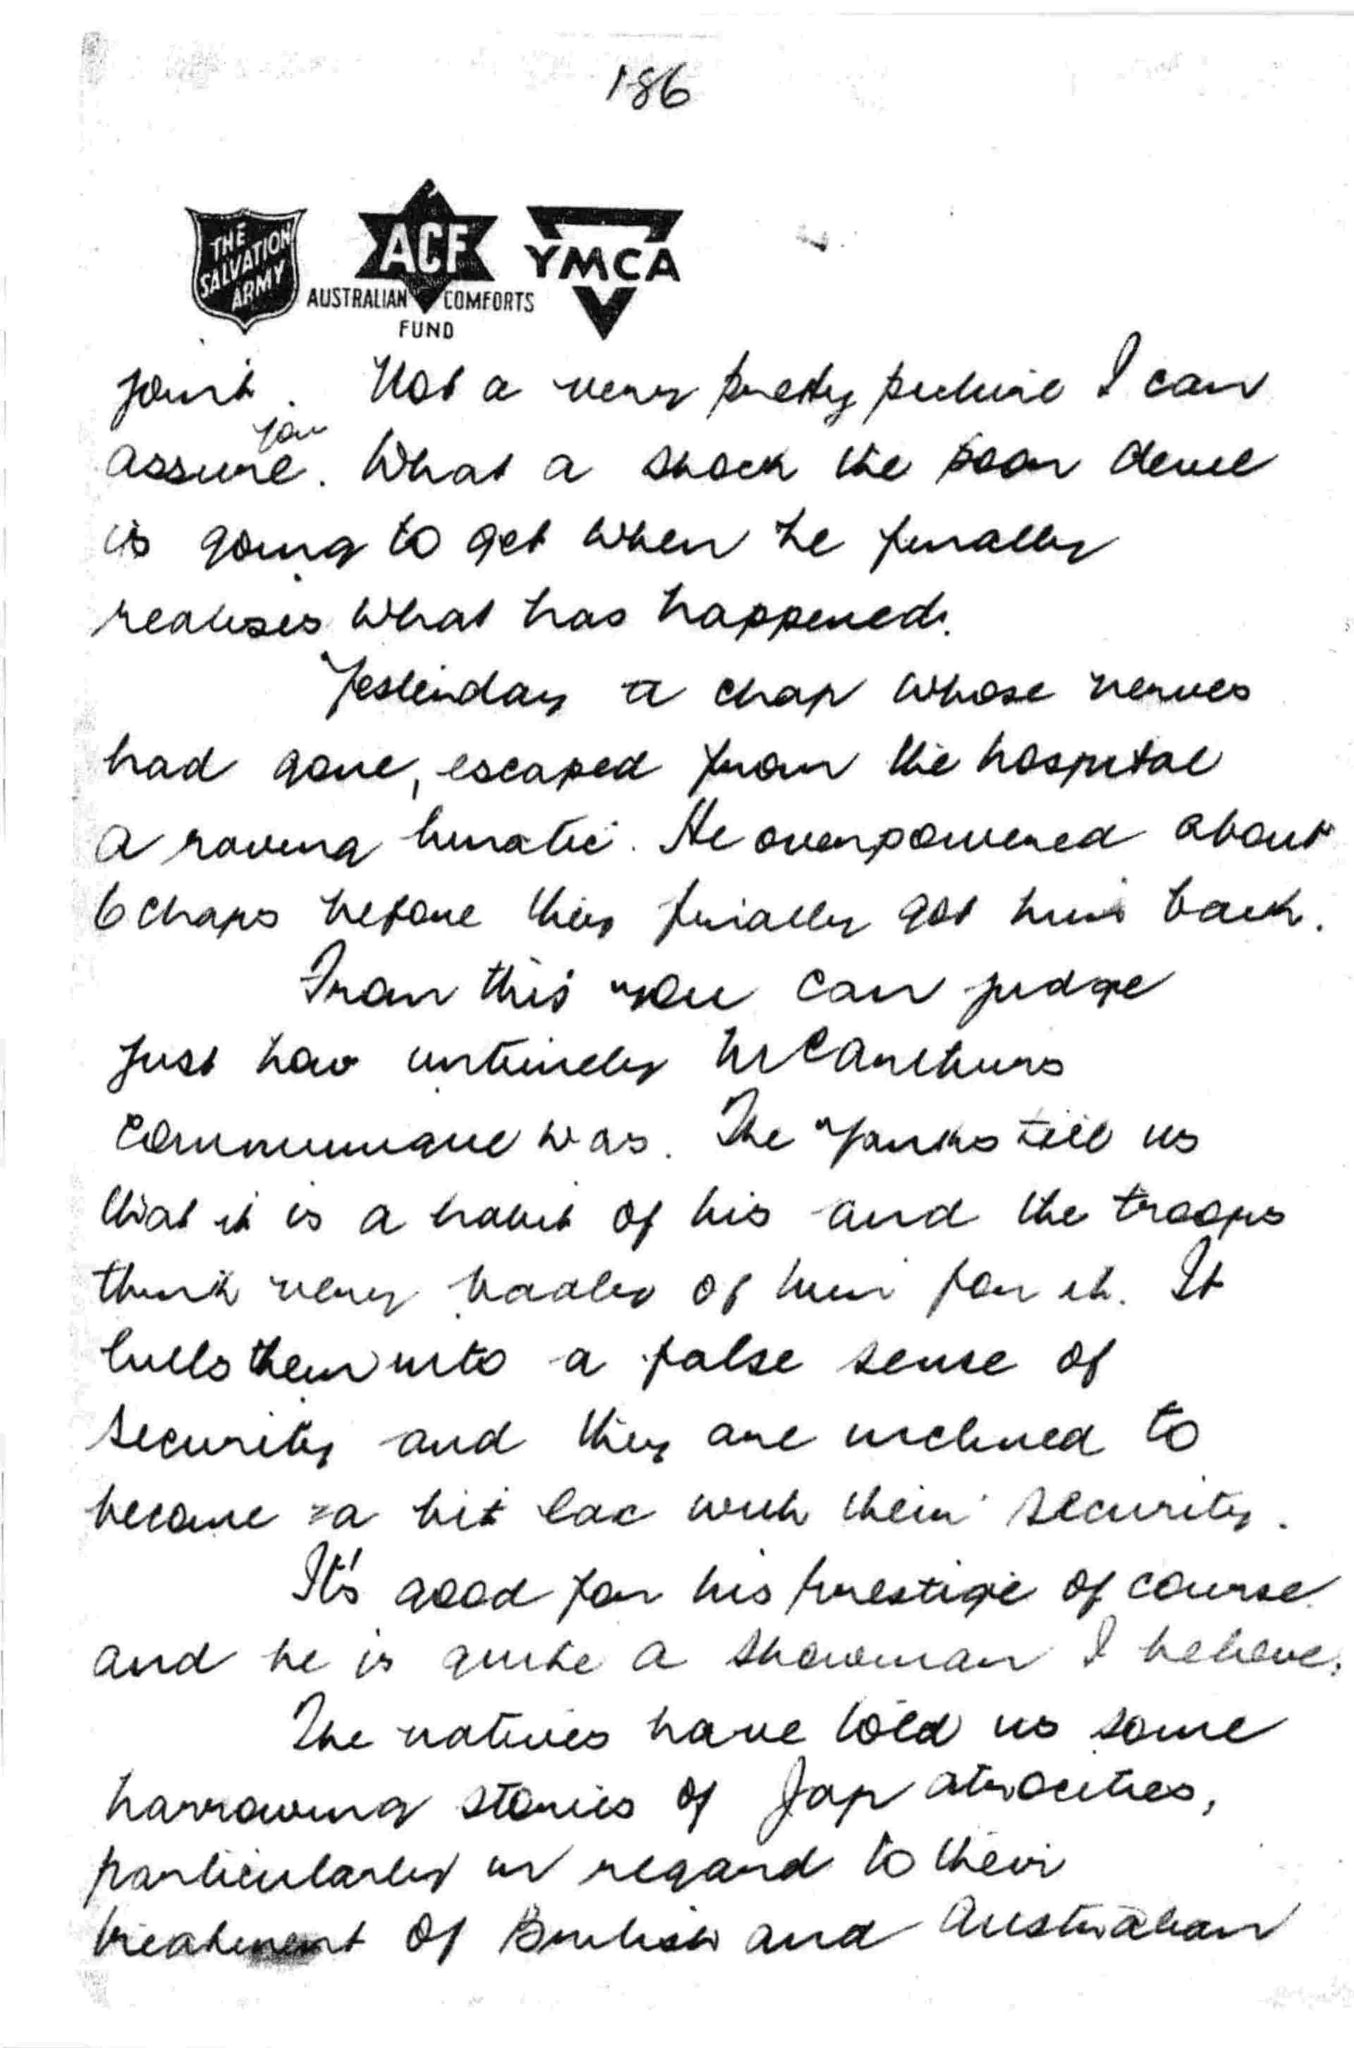 186
THE
SALVATION
ARMY
ACF
AUSTRALIAN COMFORTS
FUND
YMCA
joint. Not a very pretty picture I can
assure you. What a shock the poor devil
is going to get when he finally
realises what has happened.
Yesterday a chap whose nerves
had gone, escaped from the hospital
a raving lunatic. He overpowered about
6 chaps before they finally got him back.
From this you can judge
just how untimely McCarthurs
communique was. The Yanks tell us
that it is a habit of his and the troops
think very badly of him for it. It
lulls them into a false sense of
security and they are inclined to
become a bit lax with their security.
It's good for his prestige of course
and he is quite a showman I believe.
The natives have told us some
harrowing stories of Jap atrocities,
particularly in regard to their
treatment of British and Australian